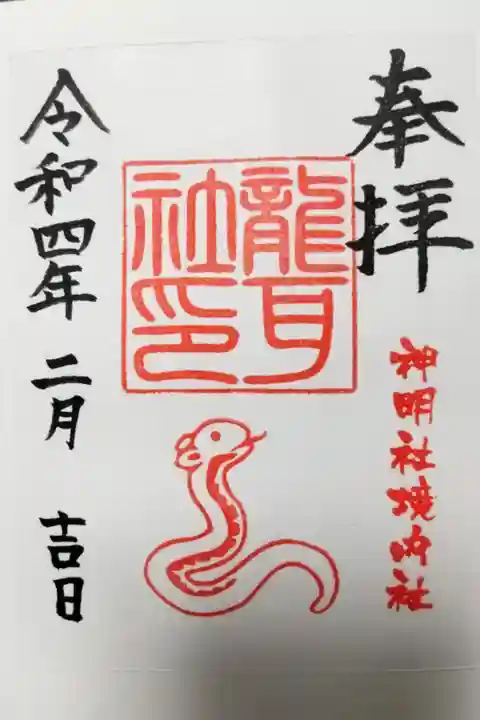 奉拝
神明社境内社
龍耳社印
令和四年 二月 吉日